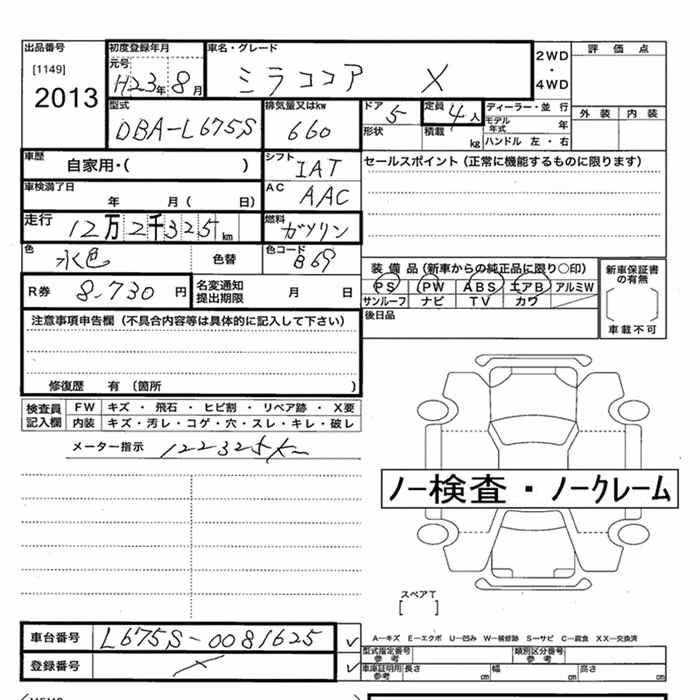 出品番号
[1149]
2013
初度登録年月
元号
H23年8月
車名・グレード
ミラココア X
2WD
・
4WD
評価点
外装 内装
型式
DBA-L675S
排気量又はkw
660
ドア 5
形状
定員 4人
積載 kg
ディーラー・並行
モデル年式 年
ハンドル 左・右
車歴
自家用・( )
シフト IAT
AC AAC
車検満了日
年 月( 日)
走行 12万2千325km
燃料 ガソリン
色 水色 色替
色コード B69
R券 8,730円
名変通知
提出期限 月 日
セールスポイント (正常に機能するものに限ります)
装備品 (新車からの純正品に限り○印)
PS PW ABS エアB アルミW
サンルーフ ナビ TV カワ
後日品
新車保証書
の有無
車載不可
注意事項申告欄 (不具合内容等は具体的に記入して下さい)
修復歴 有 〔箇所 〕
検査員
記入欄
FW キズ・飛石・ヒビ割・リペア跡・X要
内装 キズ・汚レ・コゲ・穴・スレ・キレ・破レ
メーター指示 122325km
ノー検査・ノークレーム
スペアT
[ ]
車台番号 L675S-0081625 ✓
登録番号 ✓
A―キズ E―エクボ U―凹み W―補修跡 S―サビ C―腐食 XX―交換済
型式指定番号
参考
類別区分番号
参考
車庫証明記載
参考
長さ cm 幅 cm 高さ cm
MEMO